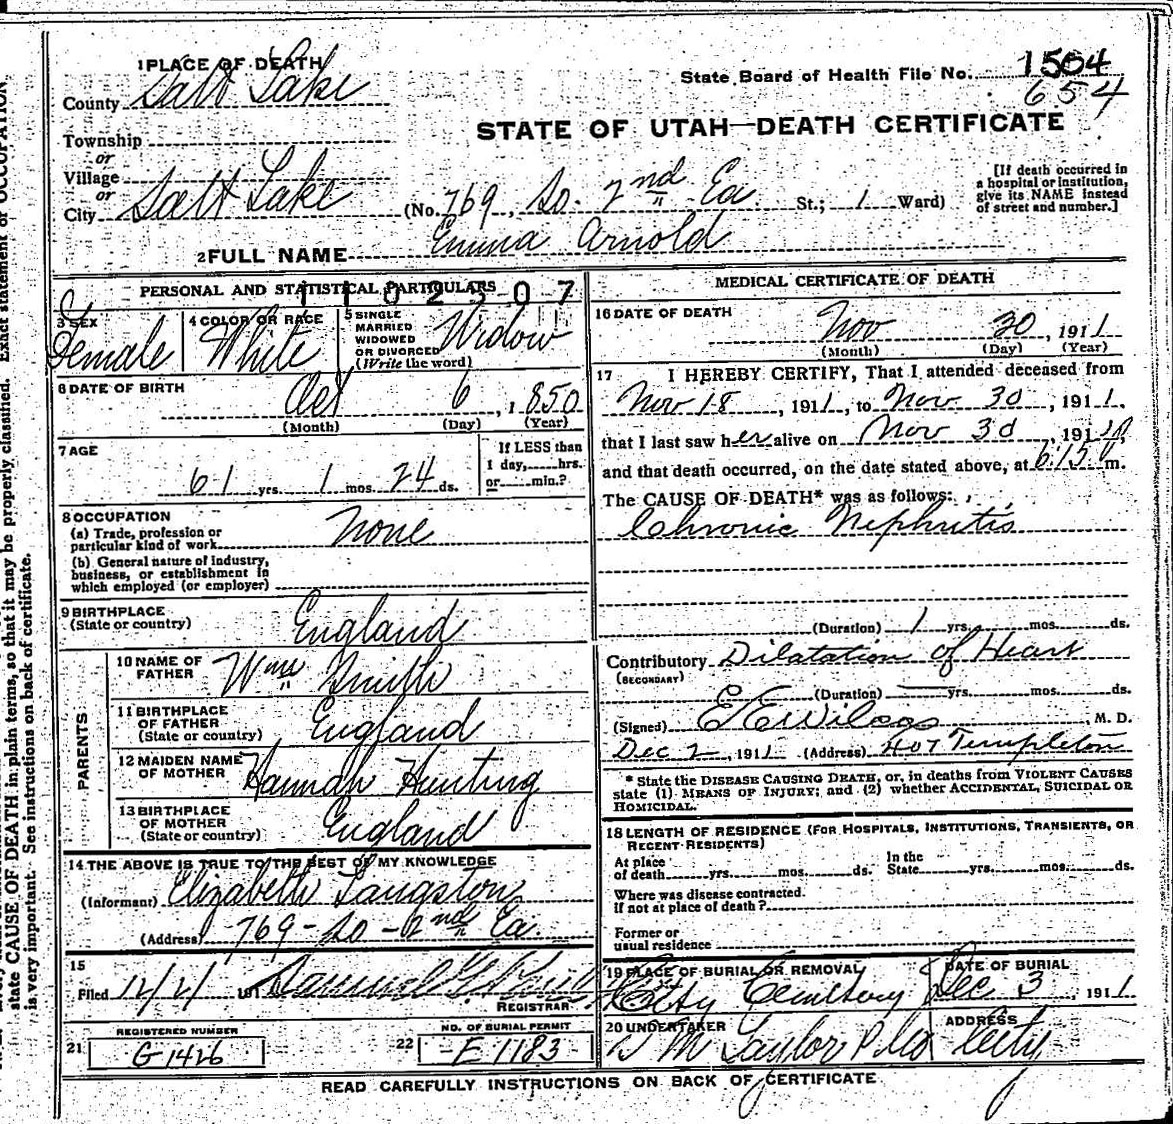 1 PLACE OF DEATH
County Salt Lake
State Board of Health File No. 1504
654
STATE OF UTAH—DEATH CERTIFICATE
Township
or
Village
or
City Salt Lake (No. 769, So. 2nd Ea. St.; 1 Ward)
[If death occurred in
a hospital or institution,
give its NAME instead
of street and number.]
2 FULL NAME Emma Arnold
PERSONAL AND STATISTICAL PARTICULARS
1102307
3 SEX Female
4 COLOR OR RACE White
5 SINGLE
MARRIED
WIDOWED
OR DIVORCED
(Write the word) Widow
6 DATE OF BIRTH
Oct 6, 1850
(Month) (Day) (Year)
7 AGE
61 yrs. 1 mos. 24 ds.
If LESS than
1 day,......hrs.
or......min.?
8 OCCUPATION
(a) Trade, profession or
particular kind of work None
(b) General nature of industry,
business, or establishment in
which employed (or employer)
9 BIRTHPLACE
(State or country) England
PARENTS
10 NAME OF
FATHER Wm Smith
11 BIRTHPLACE
OF FATHER
(State or country) England
12 MAIDEN NAME
OF MOTHER Hannah Hunting
13 BIRTHPLACE
OF MOTHER
(State or country) England
14 THE ABOVE IS TRUE TO THE BEST OF MY KNOWLEDGE
(Informant) Elizabeth Langston
(Address) 769-So-2nd Ea.
15
Filed 12/2/ 191
REGISTRAR
REGISTERED NUMBER
21 G1426
NO. OF BURIAL PERMIT
22 E 1183
MEDICAL CERTIFICATE OF DEATH
16 DATE OF DEATH
Nov 30, 1911
(Month) (Day) (Year)
17 I HEREBY CERTIFY, That I attended deceased from
Nov 18, 1911, to Nov 30, 1911,
that I last saw her alive on Nov 30, 1911,
and that death occurred, on the date stated above, at 6:15 P m.
The CAUSE OF DEATH* was as follows:
Chronic Nephritis
(Duration) 1 yrs. mos. ds.
Contributory Dilatation of Heart
(SECONDARY)
(Duration) yrs. mos. ds.
(Signed) , M. D.
Dec 2, 1911 (Address) 407 Templeton
* State the DISEASE CAUSING DEATH, or, in deaths from VIOLENT CAUSES
state (1) MEANS OF INJURY; and (2) whether ACCIDENTAL, SUICIDAL OR
HOMICIDAL.
18 LENGTH OF RESIDENCE (FOR HOSPITALS, INSTITUTIONS, TRANSIENTS, OR
RECENT RESIDENTS)
At place
of death yrs. mos. ds.
In the
State yrs. mos. ds.
Where was disease contracted.
If not at place of death?
Former or
usual residence
19 PLACE OF BURIAL OR REMOVAL
City Cemetery
DATE OF BURIAL
Dec 3, 1911
20 UNDERTAKER
S M Taylor & Co
ADDRESS
City
READ CAREFULLY INSTRUCTIONS ON BACK OF CERTIFICATE
state CAUSE OF DEATH in plain terms, so that it may be properly classified. Exact statement of OCCUPATION
is very important. See instructions on back of certificate.